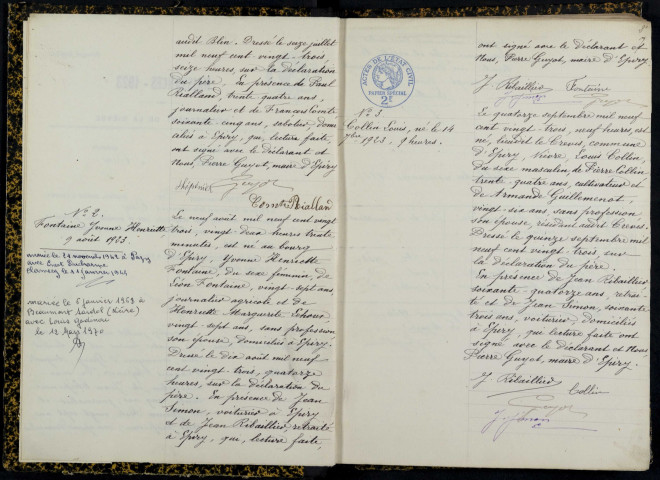 audit Blin. Dressé le seize juillet
mil neuf cent vingt trois,
seize heures, sur la déclaration
du père. En présence de Paul
Rialland, trente quatre ans,
journalier et de François Comte
soixante cinq ans, sabotier, domi-
ciliés à Epiry, qui, lecture faite,
ont signé avec le déclarant et
Nous, Pierre Guyot, maire d'Epiry
Guyot
Comte Rialland
N° 2.
Fontaine Yvonne Henriette
9 août 1923
mariée le 6 janvier 1968 à
avec Louis
le 12 Mars 1970
Le neuf août mil neuf cent vingt
trois, vingt deux heures trente
minutes, est née au bourg
d'Epiry, Yvonne Henriette
Fontaine, du sexe féminin, de
Léon Fontaine, vingt-sept ans
journalier agricole et de
Henriette Marguerite
vingt-sept ans, sans profession
son épouse, domiciliés à Epiry.
Dressé le dix août mil neuf
cent vingt-trois, quatorze
heures, sur la déclaration du
père. En présence de Jean
Simon, voiturier à Epiry
et de Jean Ribaillier retraité
à Epiry, qui, lecture faite,
ACTES DE L'ETAT CIVIL
PAPIER SPECIAL
2F
N° 3
Collin Louis, né le 14
7bre 1923, 9 heures.
ont signé avec le déclarant et
Nous, Pierre Guyot, maire d'Epiry
J Ribaillier Fontaine
J Simon Guyot
Le quatorze septembre mil neuf
cent vingt trois, neuf heures, est
né, lieudit le Creuis, commune
d'Epiry, Nièvre, Louis Collin,
du sexe masculin, de Pierre Collin
trente quatre ans, cultivateur et
de Armande Guillemenot,
vingt-six ans, sans profession
son épouse, résidant audit Creuis.
Dressé le quinze septembre mil
neuf cent vingt-trois, sur
la déclaration du père.
En présence de Jean Ribaillier,
soixante quatorze ans, retrai-
té et de Jean Simon, soixante
trois ans, voiturier, domiciliés
à Epiry, qui lecture faite ont
signé avec le déclarant et Nous,
Pierre Guyot, maire d'Epiry.
J Ribaillier
Collin
Guyot
J Simon